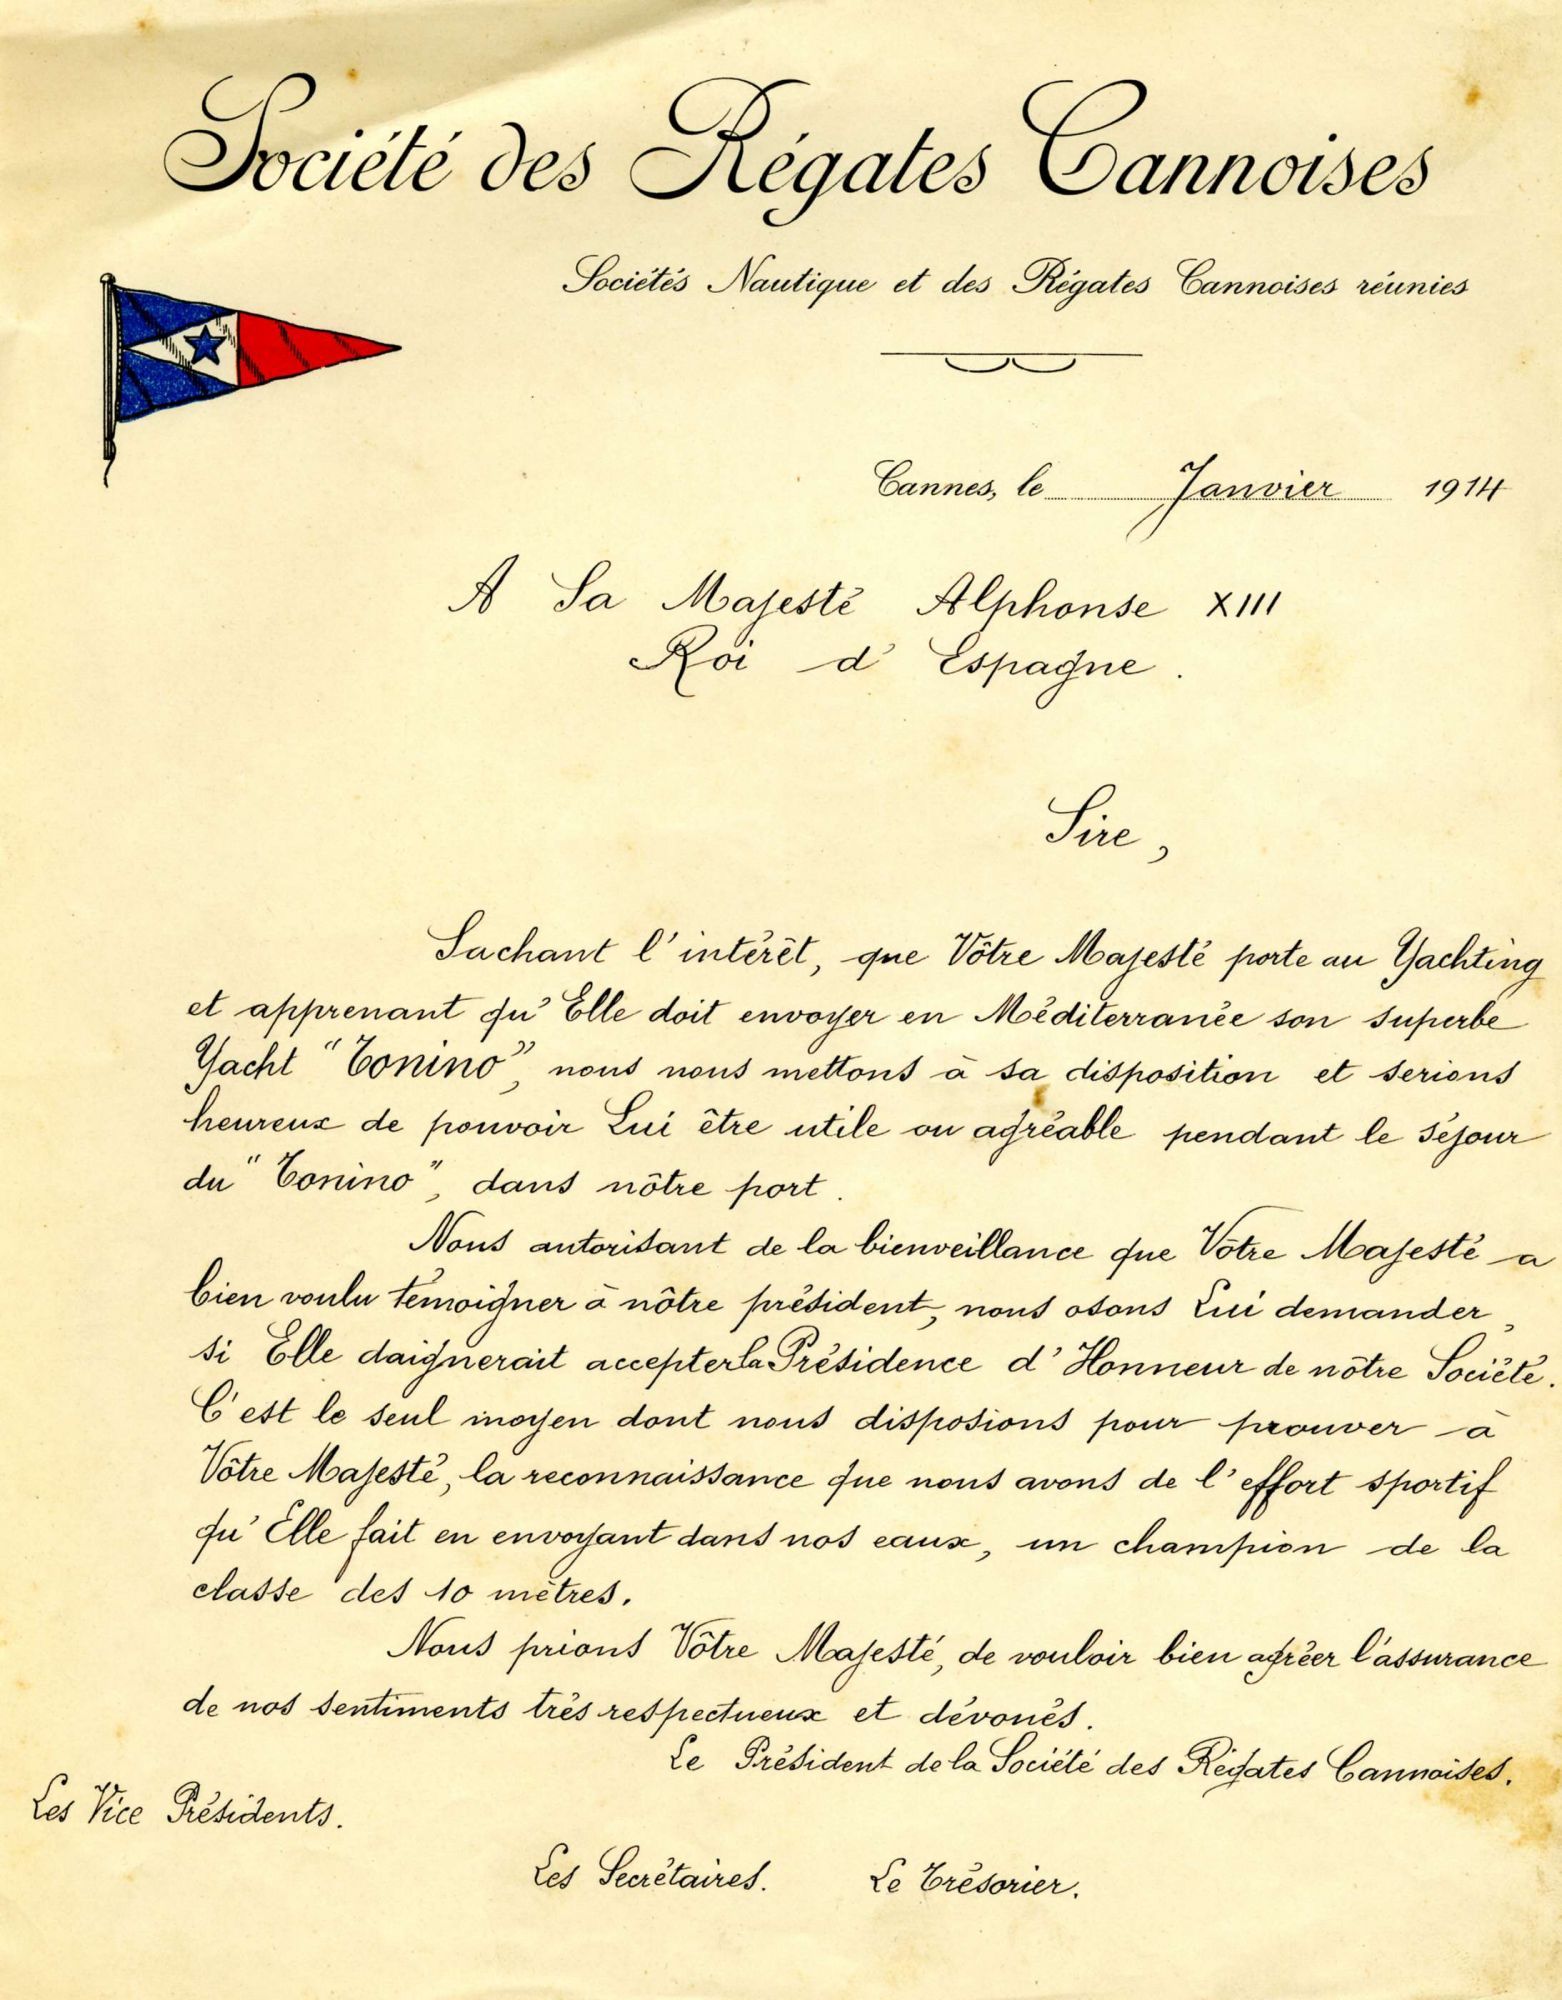 Société des Régates Cannoises
Sociétés Nautique et des Régates Cannoises réunies
Cannes, le Janvier 1914
A Sa Majesté Alphonse XIII
Roi d'Espagne.
Sire,
Sachant l'intérêt, que Vôtre Majesté porte au Yachting
et apprenant qu'Elle doit envoyer en Méditerranée son superbe
Yacht "Tonino", nous nous mettons à sa disposition et serions
heureux de pouvoir Lui être utile ou agréable pendant le séjour
du "Tonino", dans nôtre port.
Nous autorisant de la bienveillance que Vôtre Majesté a
bien voulu témoigner à nôtre président, nous osons Lui demander,
si Elle daignerait accepter la Présidence d'Honneur de nôtre Société.
C'est le seul moyen dont nous disposions pour prouver à
Vôtre Majesté, la reconnaissance que nous avons de l'effort sportif
qu'Elle fait en envoyant dans nos eaux, un champion de la
classe des 10 mètres.
Nous prions Vôtre Majesté, de vouloir bien agréer l'assurance
de nos sentiments très respectueux et dévoués.
Le Président de la Société des Régates Cannoises.
Les Vice Présidents.
Les Secrétaires. Le Trésorier.